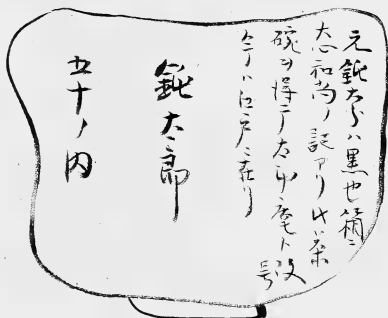 元鈍太郎ハ黒也箱ニ
太心和尚ノ記アリ此茶
碗ヲ得テ太郎庵ト改号
今ハ江戸ニ在リ
鈍太郎
五十ノ内